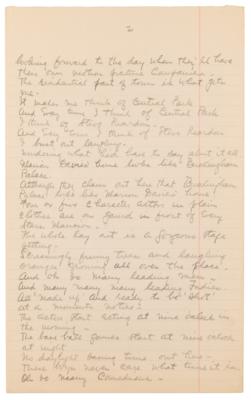 2
looking forward to the day when they'll have
their own motion picture Companies.
The residential part of town is what gets
me.
It makes me think of Central Park
And every time I think of Central Park
I think of Steve Reardon
And every time I think of Steve Reardon
I bust out laughing.
Wonder what he'd have to say about it all
Marion Davies home looks like Buckingham
Palace.
Although they claim out here that Buckingham
Palace looks like Marion Davies' home!
Four or five character actors in plain
clothes are on guard in front of every
Stars Mansion.
The whole lay out is a gorgeous stage
setting.
Seemingly pruned trees and laughing
oranges growing all over the place.
And oh so many leading men.
And many many many leading ladies
All made up and ready to be "shot"
at a moments notice!
The actors start acting at nine oclock in
the morning.
The base ball games start at nine oclock
at night.
No daylight saving time out here.
These boys never care what time it is.
Oh so many Comedians.